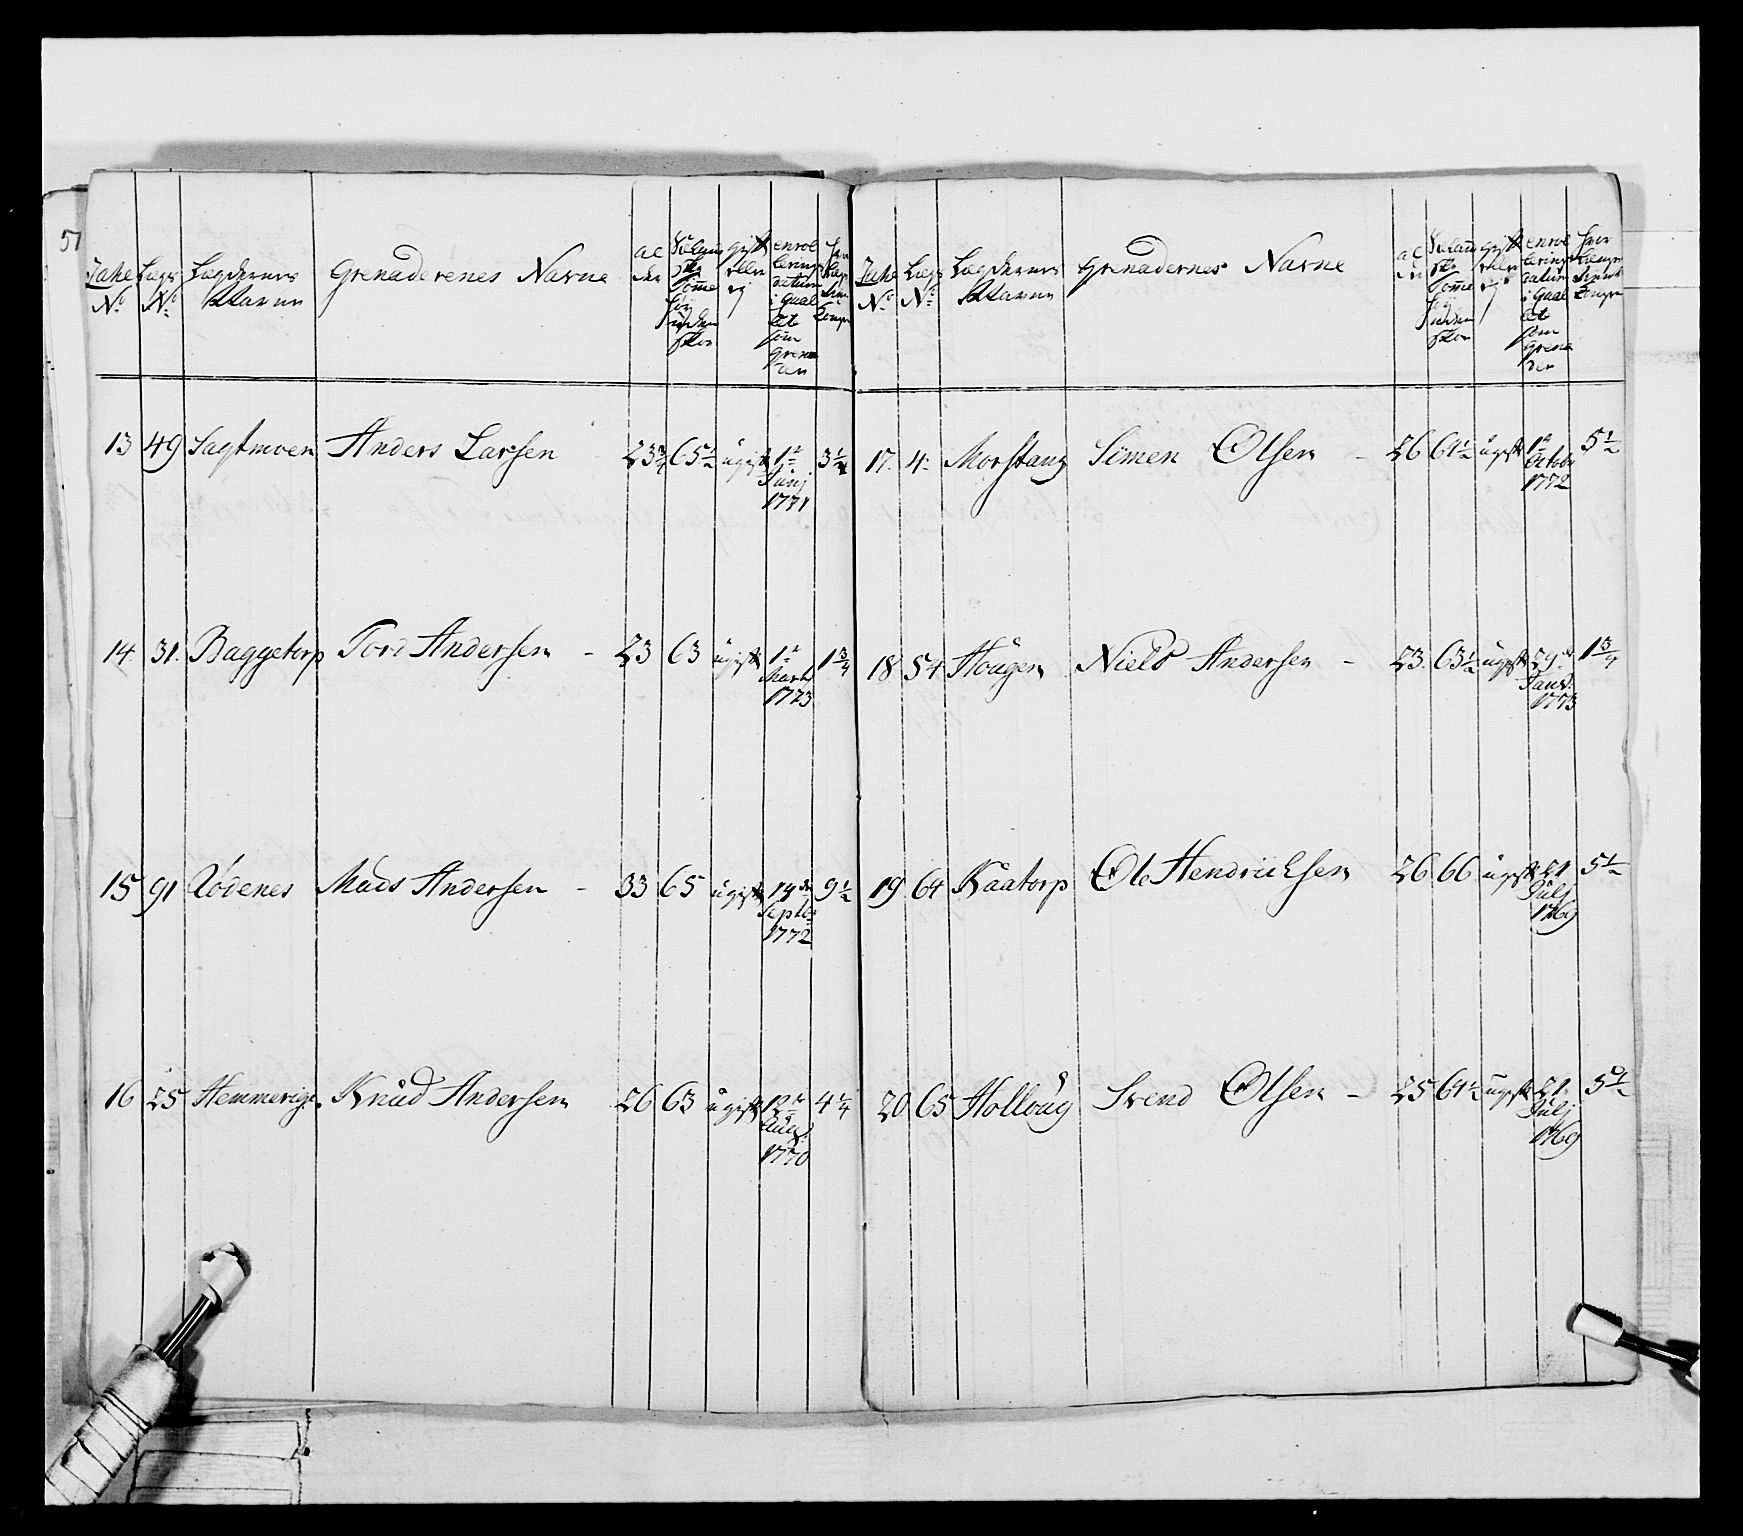 5
Zahe No. Lægs No. Lægdernes Navne Grenaderenes Navne al der gift eller ej enrol lerings datum i Qual itet som grena der
13 49 Sagtmoen Anders Larsen 23¾ 65½ ugift 1te Junj 1771 3¼
14. 31. Baggetorp Tord Andersen - 23 63 ugift 1te Marts 1773 1¾
15 91 Rødenes Mads Andersen - 33 65 ugift 14de Septbr 1772 9½
16 25 Hemmerige. Knud Andersen 26 63 ugift 12te Augs. 1770 4¼
Zahe No. Lægs No. Lægdernes Navne Grenadernes Navne al der gift eller ej enrol lerings datum i Qual itet som grena der
17. 4. Morstang Simen Olsen - 26 61½ ugift 1te Octobr 1772 5½
18 54 Hougen Niels Andersen - 23. 63½ ugift 29de Janr. 1773 1¾
19 64 Kaatorp Ole Hendrichsen 26 66 ugift 21 Julj 1769 5½
20 65 Holloug Svend Olsen - 25 61½ ugift 21. Julj 1769 5½